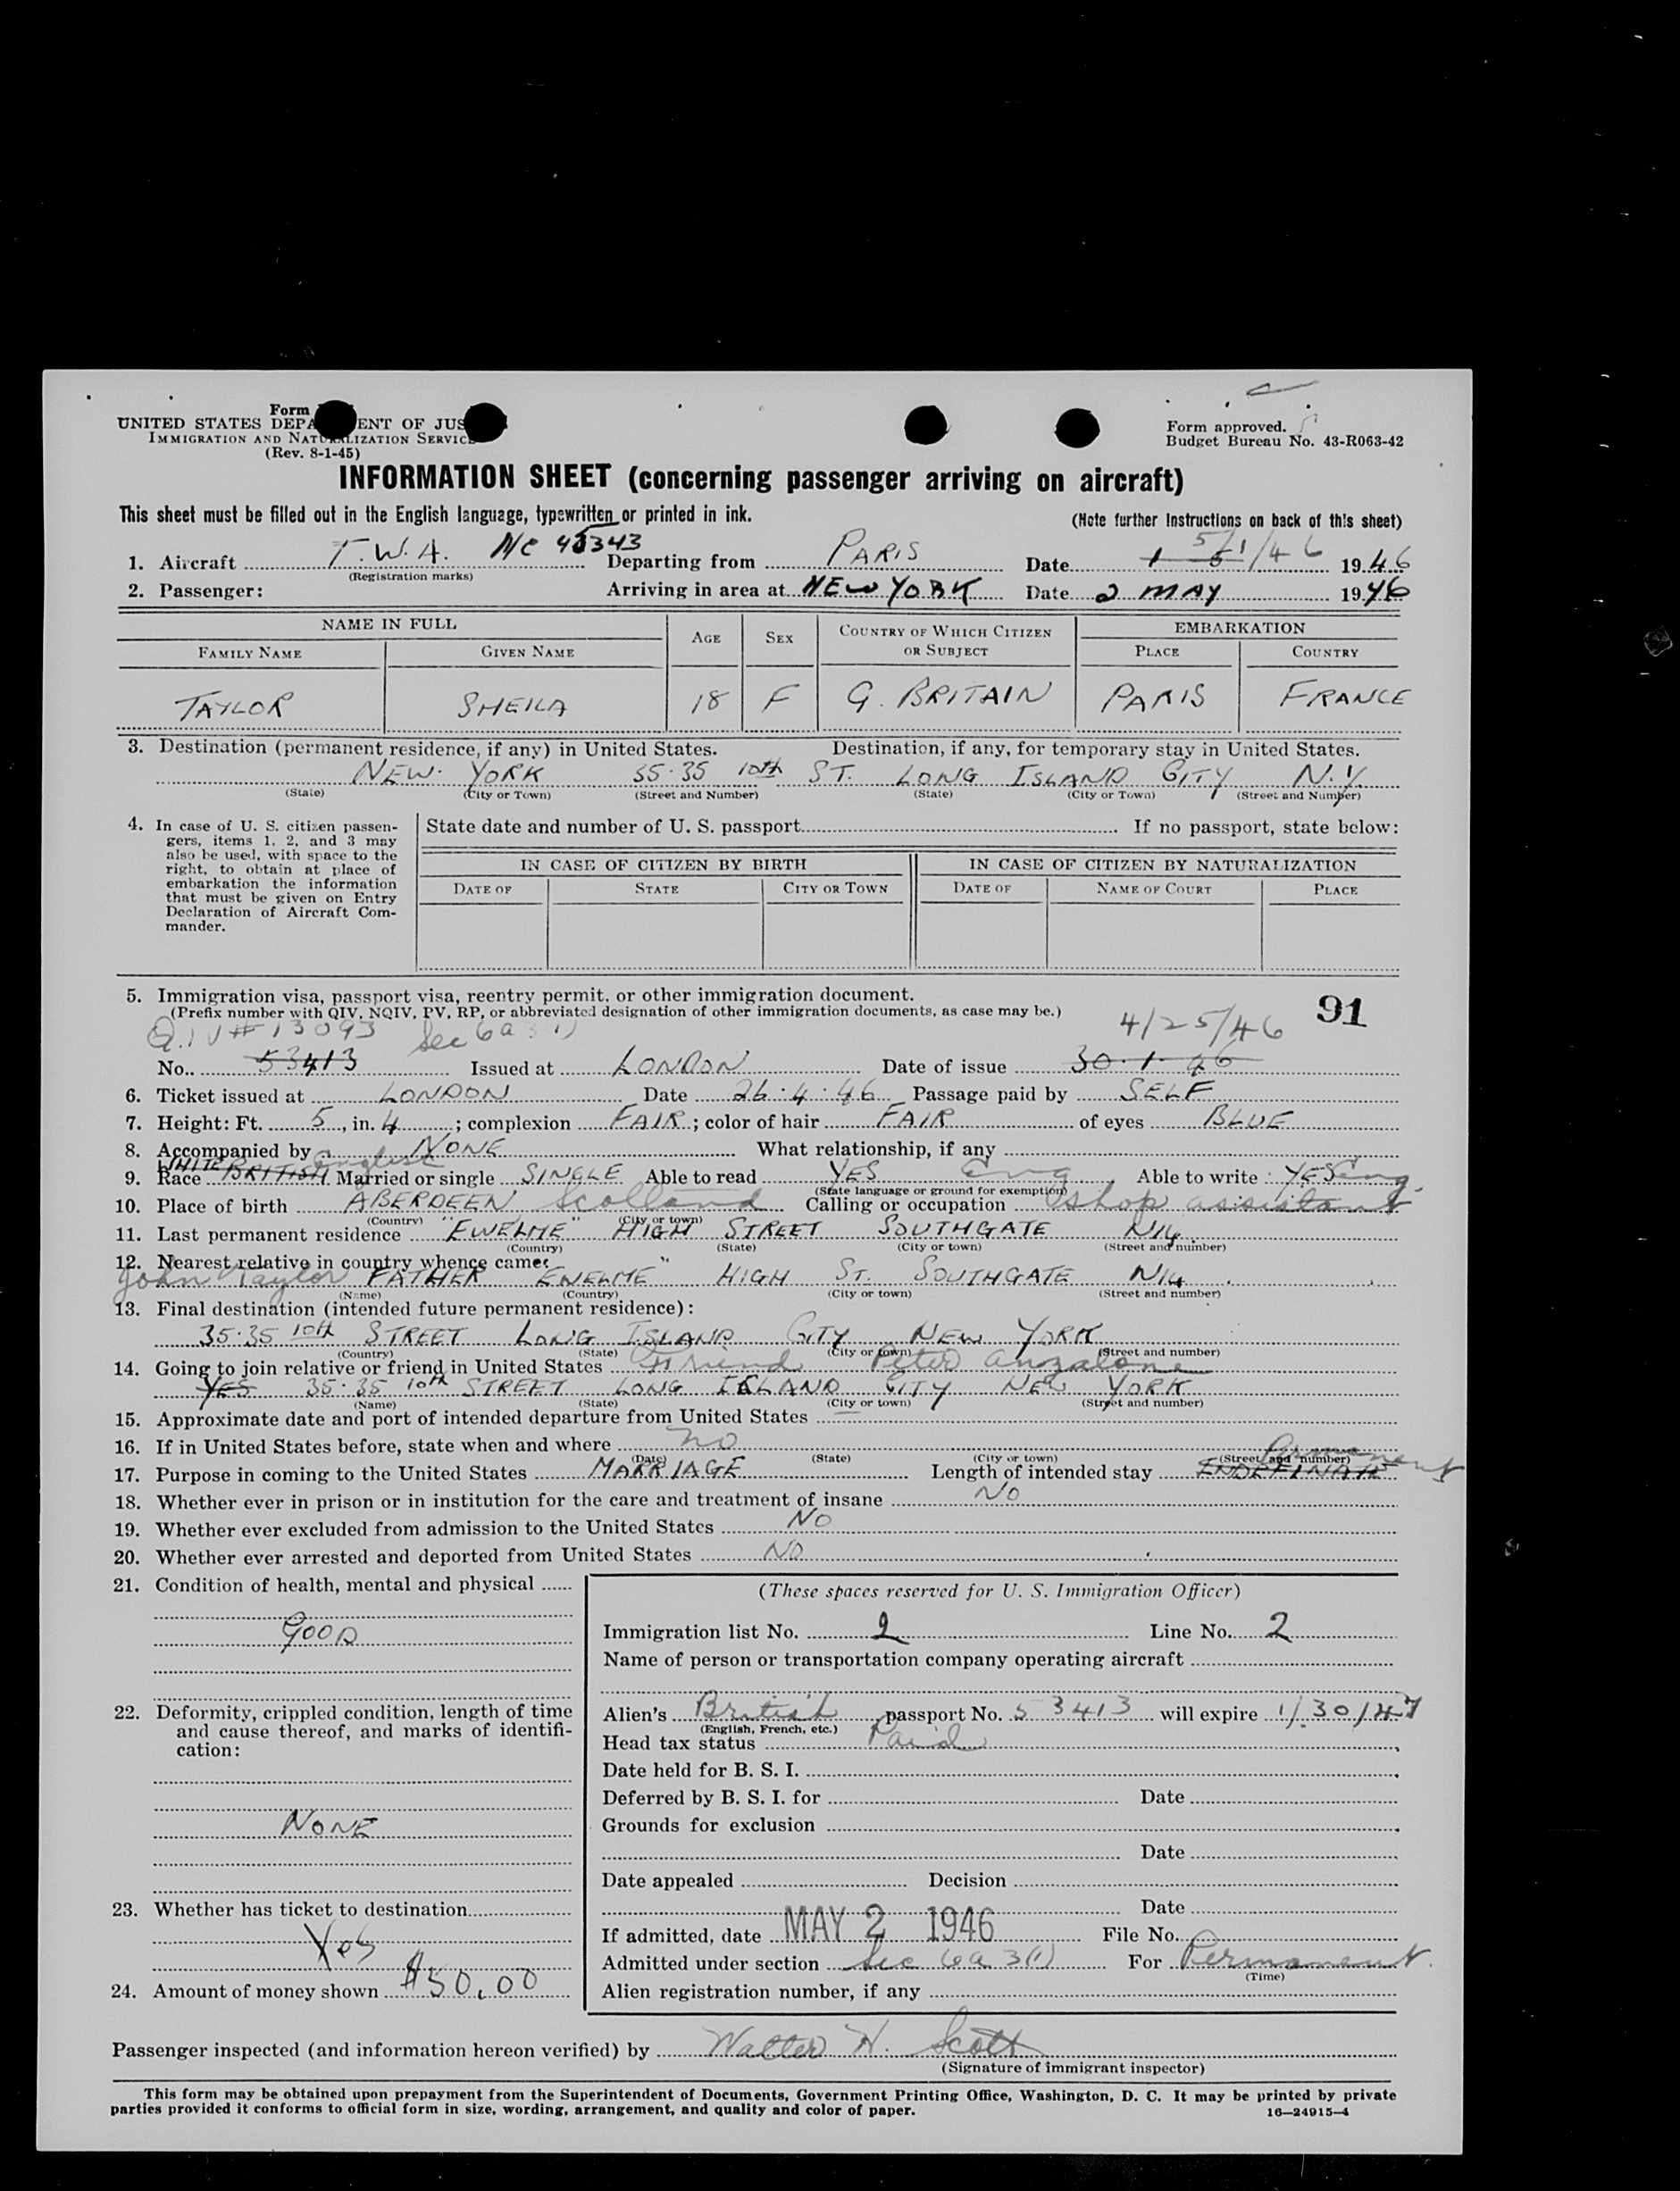 Form
UNITED STATES DEPA ENT OF JUS
IMMIGRATION AND NATURALIZATION SERVICE
(Rev. 8-1-45)
Form approved.
Budget Bureau No. 43-R063-42
INFORMATION SHEET (concerning passenger arriving on aircraft)
This sheet must be filled out in the English language, typewritten or printed in ink. (Note further instructions on back of this sheet)
1. Aircraft T.W.A. N/C 45343 Departing from PARIS Date 1 5 5/1/46 1946
(Registration marks)
2. Passenger: Arriving in area at NEW YORK Date 2 MAY 1946
NAME IN FULL AGE SEX COUNTRY OF WHICH CITIZEN OR SUBJECT EMBARKATION
FAMILY NAME GIVEN NAME PLACE COUNTRY
TAYLOR SHEILA 18 F G. BRITAIN PARIS FRANCE
3. Destination (permanent residence, if any) in United States. Destination, if any, for temporary stay in United States.
NEW YORK 35·35 10th ST. LONG ISLAND CITY N.Y.
(State) (City or Town) (Street and Number) (State) (City or Town) (Street and Number)
4. In case of U. S. citizen passengers, items 1, 2, and 3 may also be used, with space to the right, to obtain at place of embarkation the information that must be given on Entry Declaration of Aircraft Commander.
State date and number of U. S. passport If no passport, state below:
IN CASE OF CITIZEN BY BIRTH IN CASE OF CITIZEN BY NATURALIZATION
DATE OF STATE CITY OR TOWN DATE OF NAME OF COURT PLACE
5. Immigration visa, passport visa, reentry permit, or other immigration document.
(Prefix number with QIV, NQIV, PV, RP, or abbreviated designation of other immigration documents, as case may be.)
91
Q.IV# 13093 Sec 6a 3(1) 4/25/46
No. 53413 Issued at LONDON Date of issue 30·1·46
6. Ticket issued at LONDON Date 26·4·46 Passage paid by SELF
7. Height: Ft. 5, in. 4; complexion FAIR; color of hair FAIR of eyes BLUE
8. Accompanied by NONE What relationship, if any
9. Race WHITE BRITISH English Married or single SINGLE Able to read YES Eng Able to write YES Eng.
(State language or ground for exemption)
10. Place of birth ABERDEEN Scotland Calling or occupation shop assistant
(Country) (City or town)
11. Last permanent residence "EWELME" HIGH STREET SOUTHGATE N14.
(Country) (State) (City or town) (Street and number)
12. Nearest relative in country whence came:
John Taylor FATHER EWELME" HIGH ST. SOUTHGATE N14
(Name) (Country) (City or town) (Street and number)
13. Final destination (intended future permanent residence):
35·35 10th STREET LONG ISLAND CITY NEW YORK
(Country) (State) (City or town) (Street and number)
14. Going to join relative or friend in United States Friend Peter Anzalone
YES 35·35 10th STREET LONG ISLAND CITY NEW YORK
(Name) (State) (City or town) (Street and number)
15. Approximate date and port of intended departure from United States —
16. If in United States before, state when and where no
(Date) (State) (City or town) (Street and number)
17. Purpose in coming to the United States MARRIAGE Length of intended stay INDEFINATE Permanent
18. Whether ever in prison or in institution for the care and treatment of insane NO
19. Whether ever excluded from admission to the United States NO
20. Whether ever arrested and deported from United States NO
21. Condition of health, mental and physical
GOOD
22. Deformity, crippled condition, length of time and cause thereof, and marks of identification:
NONE
23. Whether has ticket to destination
Yes
24. Amount of money shown $50.00
(These spaces reserved for U. S. Immigration Officer)
Immigration list No. 2 Line No. 2
Name of person or transportation company operating aircraft
Alien's British passport No. 53413 will expire 1/30/47
(English, French, etc.)
Head tax status Paid
Date held for B. S. I.
Deferred by B. S. I. for Date
Grounds for exclusion
Date
Date appealed Decision
Date
If admitted, date MAY 2 1946 File No.
Admitted under section Sec 6a 3(1) For Permanent.
(Time)
Alien registration number, if any
Passenger inspected (and information hereon verified) by Walter H. Scott
(Signature of immigrant inspector)
This form may be obtained upon prepayment from the Superintendent of Documents, Government Printing Office, Washington, D. C. It may be printed by private
parties provided it conforms to official form in size, wording, arrangement, and quality and color of paper. 16—24915-4